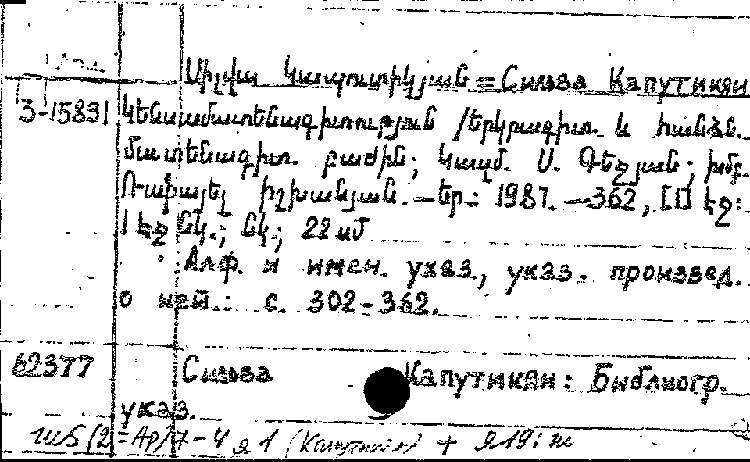 Սիլվա Կապուտիկյան = Сильва Капутикян
3-15891 Կենսամատենագիտություն /Երկրագիտ. և հանձն.
մատենագիտ. բաժին; Կազմ. Ս. Դեշյան; խմբ.
Ռաֆայել Իշխանյան. — Եր.: 1987. — 362, [1] էջ:
1 էջ նկ.; նկ.; 22 սմ
Алф. и имен. указ., указ. произвед.
о ней.: с. 302-362.
62377 Сильва Капутикян: Библиогр.
указ.
+ я19: